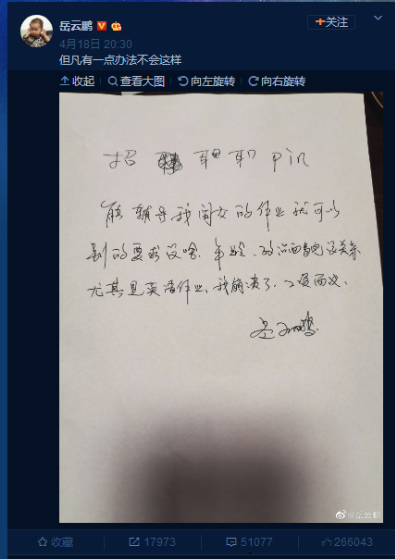 岳云鹏
+关注
4月18日 20:30
但凡有一点办法不会这样
收起 查看大图 向左旋转 向右旋转
招 耶 职 pin
能辅导我闺女的作业就可以
别的要求没啥。年龄、政治面貌没关系
尤其是英语作业,我崩溃了。工资面议、
岳云鹏
@岳云鹏
收藏 17973 51077 266043